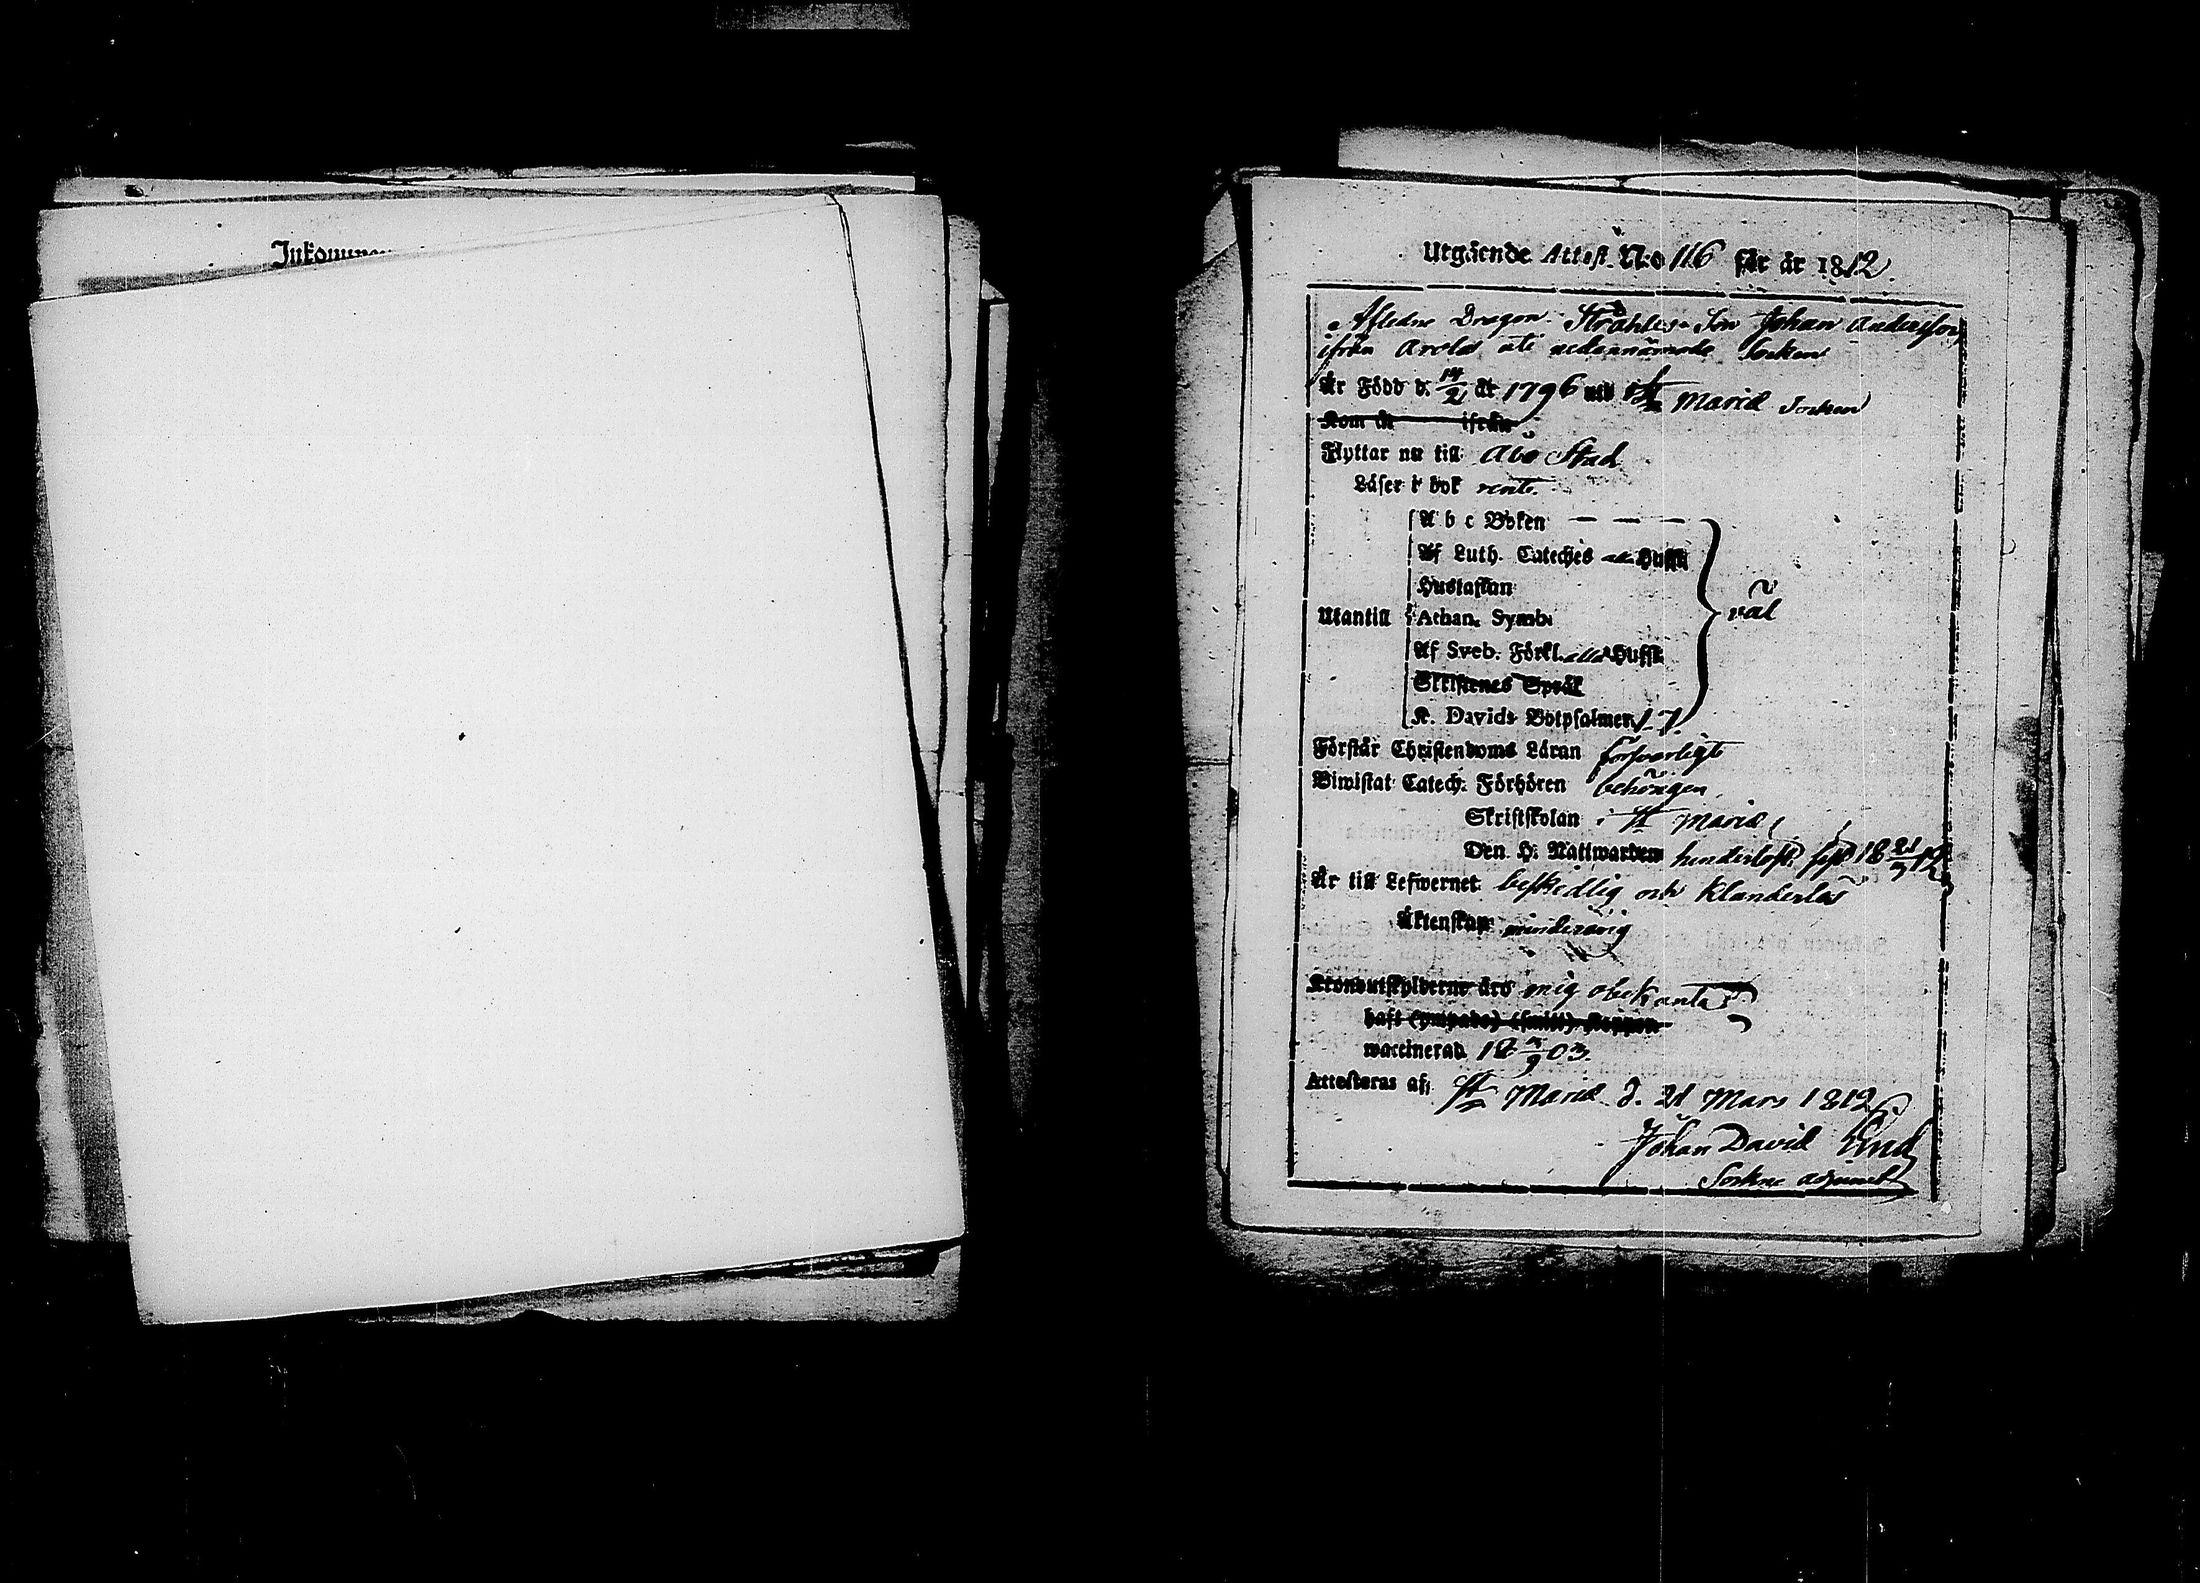 Inkommen
Utgående Attest N:o 116 för år 1812.
Afledne Dragon Stråhles Son Johan Andersson
ifrån Arola uti nedannämnde Socken
Är Född d. 14/2 år 1796 uti S:t Mariæ Socken
Kom år ifrån
Flyttar nu till Åbo Stad
Läser i bok rent.
A b c Boken — — —
Af Luth. Cateches alla Hufst.
Hustaflan
Utantill Athan. Symb. väl
Af Sveb. Förkl. alla Hufst.
Skriftenes Språk
K. Davids Botpsalmer 1. 7.
Förstår Christendoms Läran försvarligt
Biwistat Catech. Förhören behörigen
Skriftskolan i S:t Mariæ
Den H. Nattwarden 18 21/3 12
Är till Lefwernet beskedlig och klanderlös
Äktenskap minderårig
Kronoutskylderne äro mig obekanta
haft (ympade) (smitt) koppor
waccinerad 18 3/9 03.
Attesteras af; S:t Mariæ d. 21 Mars 1812.
Johan David Lind
Sockne adjunct